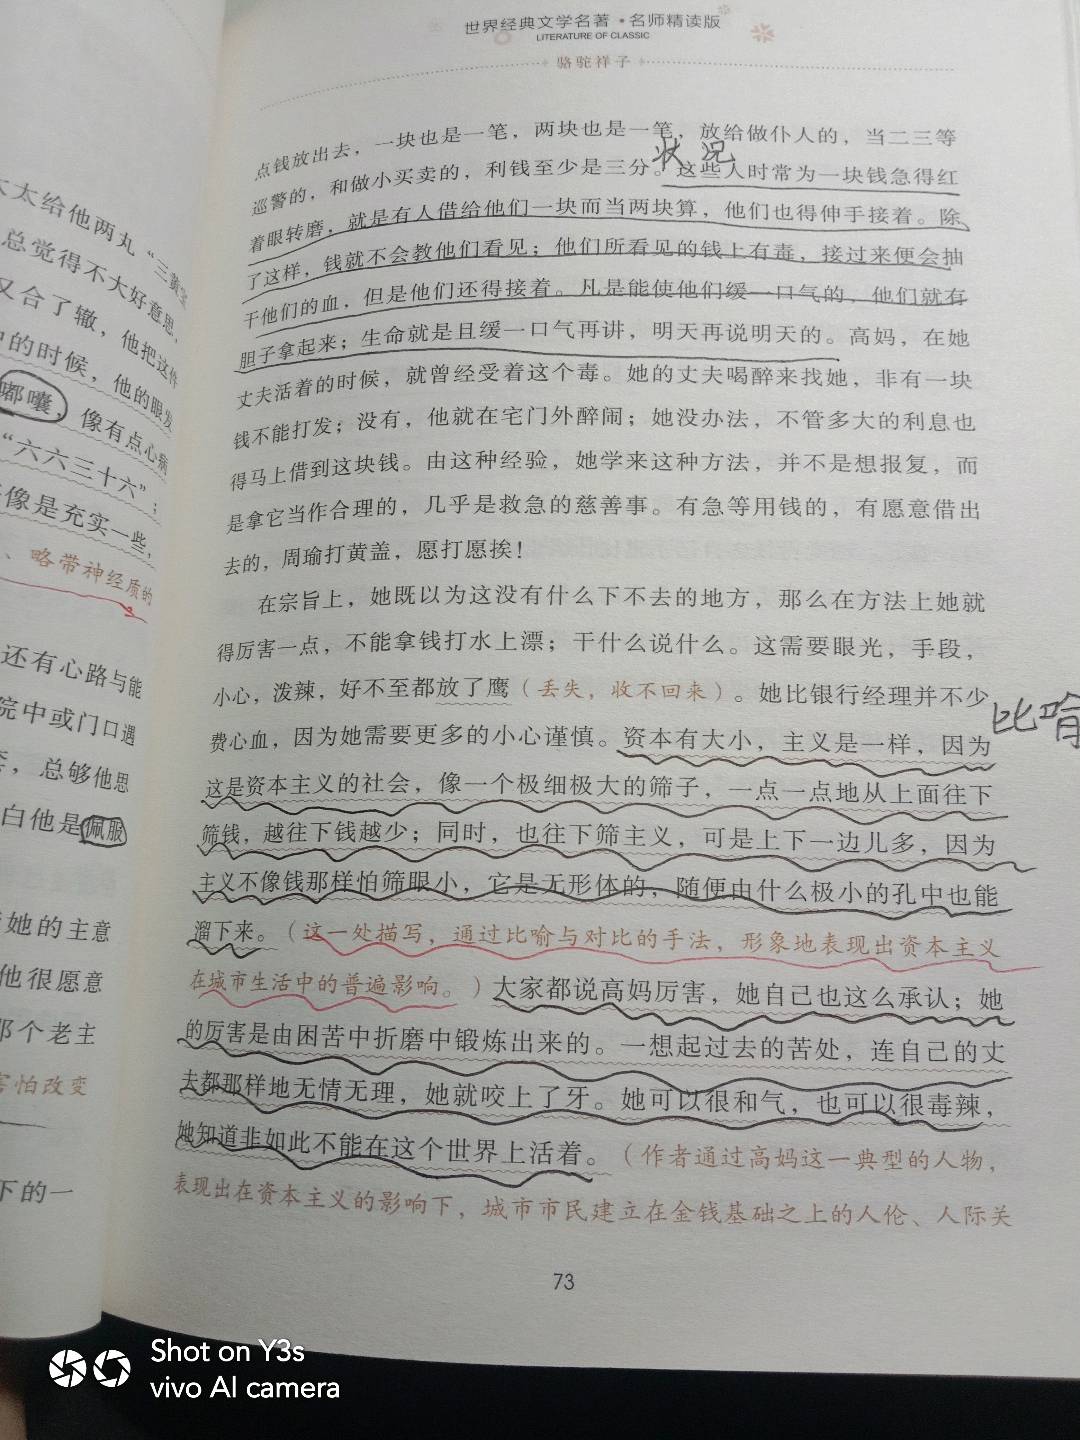 太太给他两丸“三黄宝
总觉得不大好意思，
又合了辙，他把这件
的时候，他的眼发
嘟囔，像有点心病
“六六三十六”；
像是充实一些，
、略带神经质的
还有心路与能
院中或门口遇
，总够他思
白他是佩服
她的主意
他很愿意
那个老主
害怕改变
下的一
世界经典文学名著·名师精读版
LITERATURE OF CLASSIC
骆驼祥子
点钱放出去，一块也是一笔，两块也是一笔，放给做仆人的，当二三等
状况
巡警的，和做小买卖的，利钱至少是三分。这些人时常为一块钱急得红
着眼转磨，就是有人借给他们一块而当两块算，他们也得伸手接着。除
了这样，钱就不会教他们看见；他们所看见的钱上有毒，接过来便会抽
干他们的血，但是他们还得接着。凡是能使他们缓一口气的，他们就有
胆子拿起来；生命就是且缓一口气再讲，明天再说明天的。高妈，在她
丈夫活着的时候，就曾经受着这个毒。她的丈夫喝醉来找她，非有一块
钱不能打发；没有，他就在宅门外醉闹；她没办法，不管多大的利息也
得马上借到这块钱。由这种经验，她学来这种方法，并不是想报复，而
是拿它当作合理的，几乎是救急的慈善事。有急等用钱的，有愿意借出
去的，周瑜打黄盖，愿打愿挨！
在宗旨上，她既以为这没有什么下不去的地方，那么在方法上她就
得厉害一点，不能拿钱打水上漂；干什么说什么。这需要眼光，手段，
小心，泼辣，好不至都放了鹰（丢失，收不回来）。她比银行经理并不少
比喻
费心血，因为她需要更多的小心谨慎。资本有大小，主义是一样，因为
这是资本主义的社会，像一个极细极大的筛子，一点一点地从上面往下
筛钱，越往下钱越少；同时，也往下筛主义，可是上下一边儿多，因为
主义不像钱那样怕筛眼小，它是无形体的，随便由什么极小的孔中也能
溜下来。（这一处描写，通过比喻与对比的手法，形象地表现出资本主义
在城市生活中的普遍影响。）大家都说高妈厉害，她自己也这么承认；她
的厉害是由困苦中折磨中锻炼出来的。一想起过去的苦处，连自己的丈
夫都那样地无情无理，她就咬上了牙。她可以很和气，也可以很毒辣，
她知道非如此不能在这个世界上活着。（作者通过高妈这一典型的人物，
表现出在资本主义的影响下，城市市民建立在金钱基础之上的人伦、人际关
73
Shot on Y3s
vivo AI camera